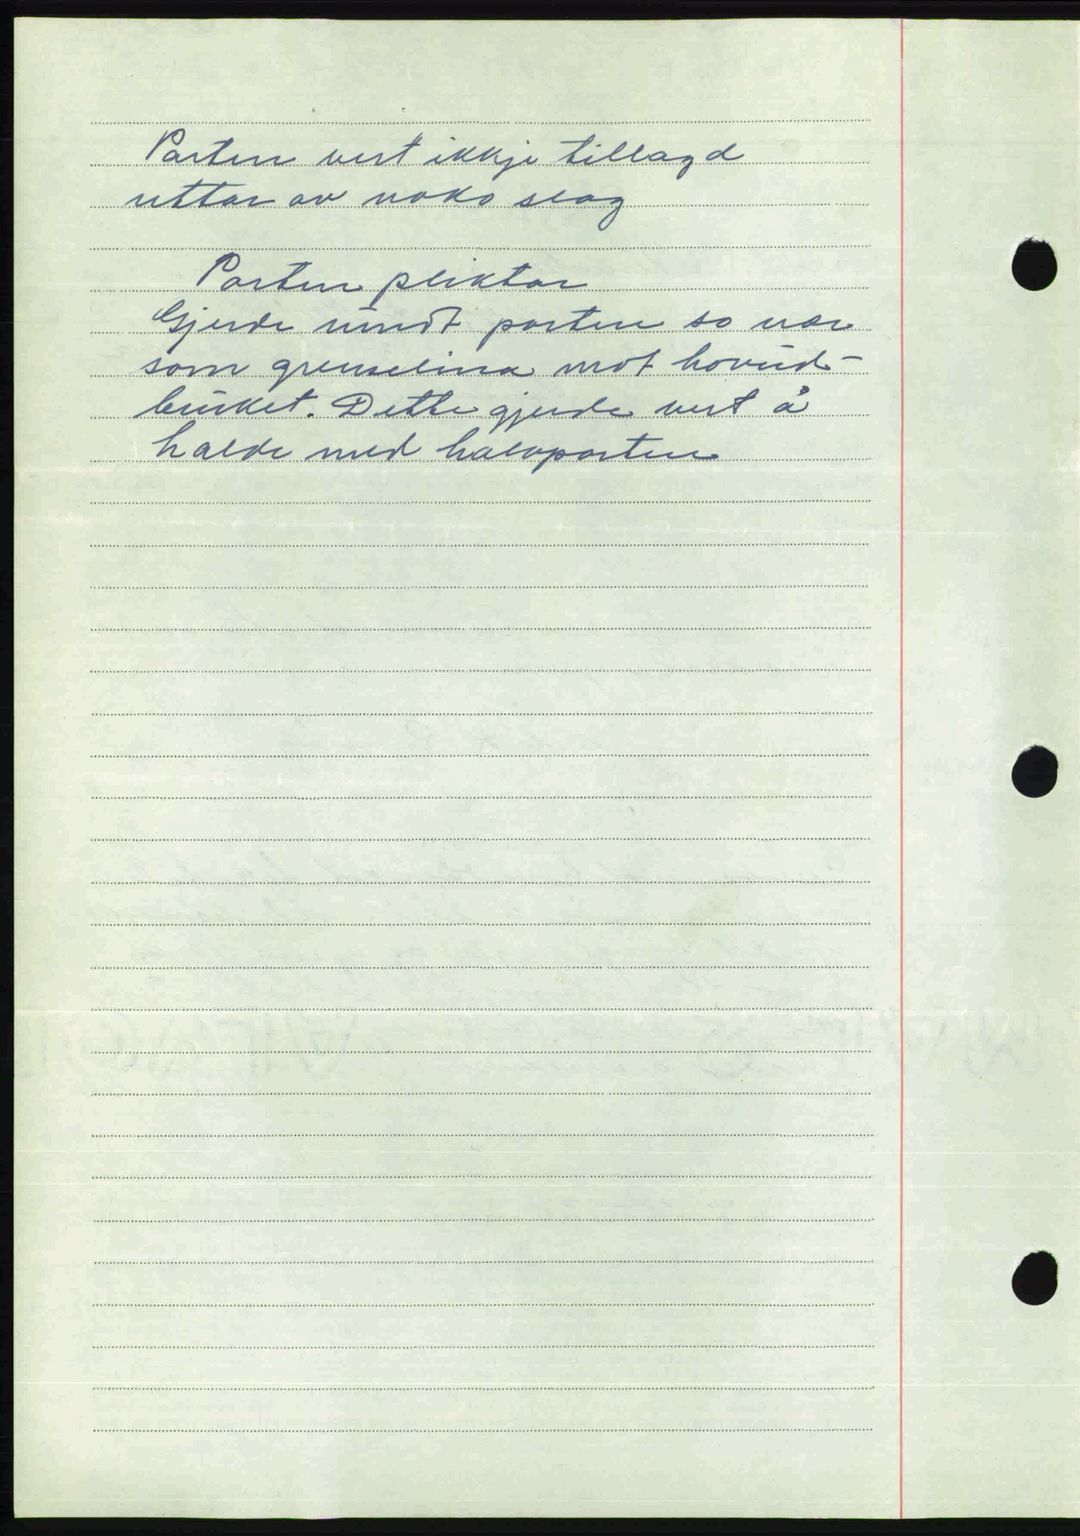 Parten vert ikkje tillagd
rettar av noko slag
Parten pliktar
Gjerde rundt parten so nær
som grenselina mot hovud-
bruket. Dette gjerde vert å
halde med halvparten